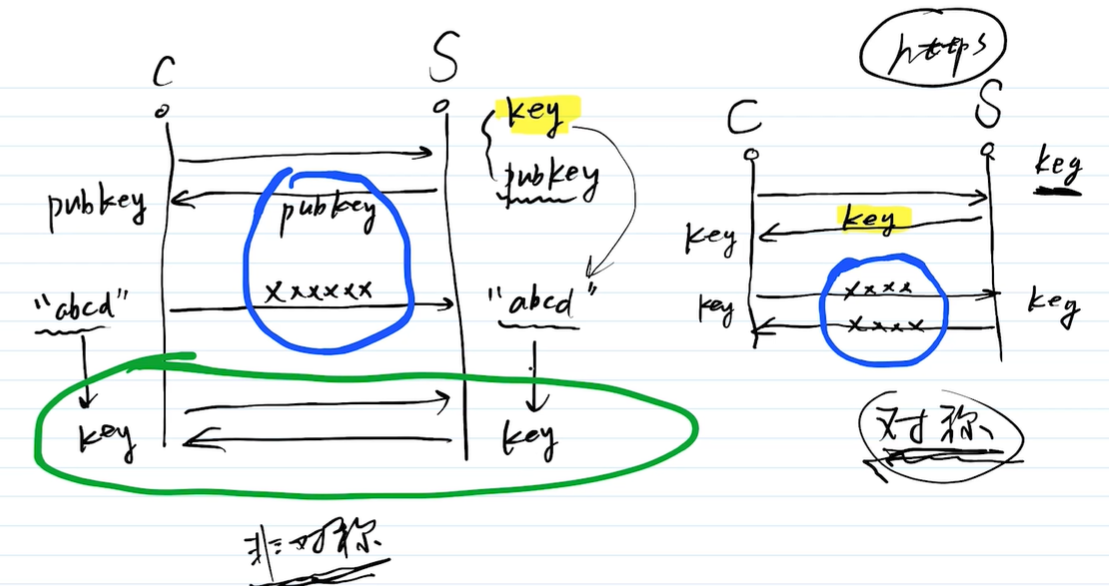 C
S
key
pubkey
pubkey
pubkey
"abcd"
xxxxxx
"abcd"
key
key
非对称
https
C
S
key
key
key
key
xxxx
key
xxxx
对称